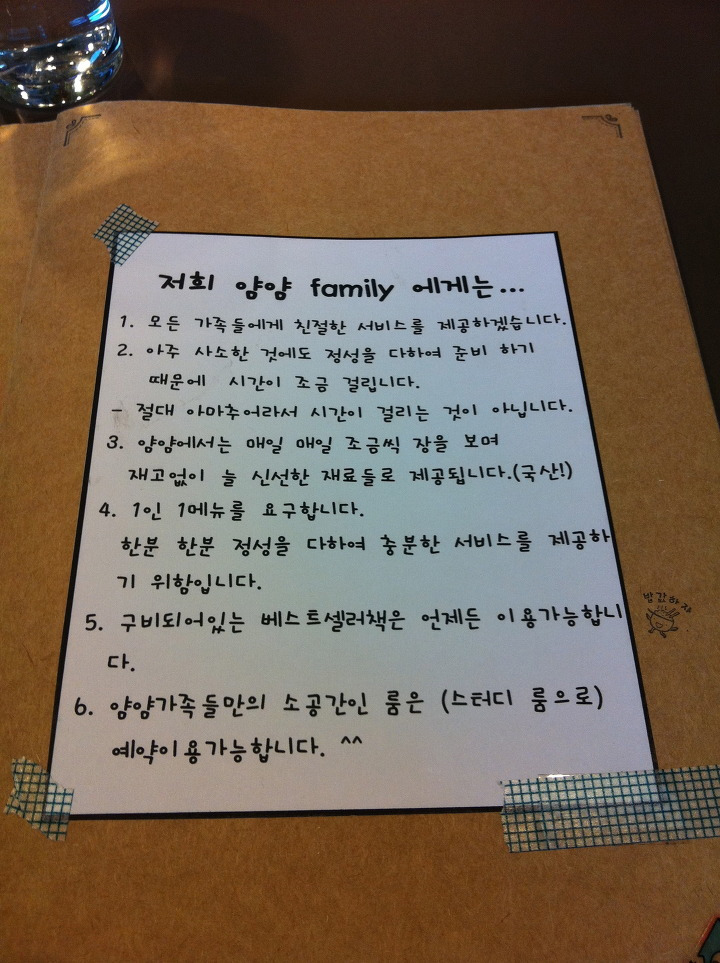 저희 얌얌 family 에게는...
1. 모든 가족들에게 친절한 서비스를 제공하겠습니다.
2. 아주 사소한 것에도 정성을 다하여 준비 하기
때문에 시간이 조금 걸립니다.
- 절대 아마추어라서 시간이 걸리는 것이 아닙니다.
3. 얌얌에서는 매일 매일 조금씩 장을 보며
재고없이 늘 신선한 재료들로 제공됩니다.(국산!)
4. 1인 1메뉴를 요구합니다.
한분 한분 정성을 다하여 충분한 서비스를 제공하
기 위함입니다.
5. 구비되어있는 베스트셀러책은 언제든 이용가능합니
다.
6. 얌얌가족들만의 소공간인 룸은 (스터디 룸으로)
예약이용가능합니다. ^^
밥값하자